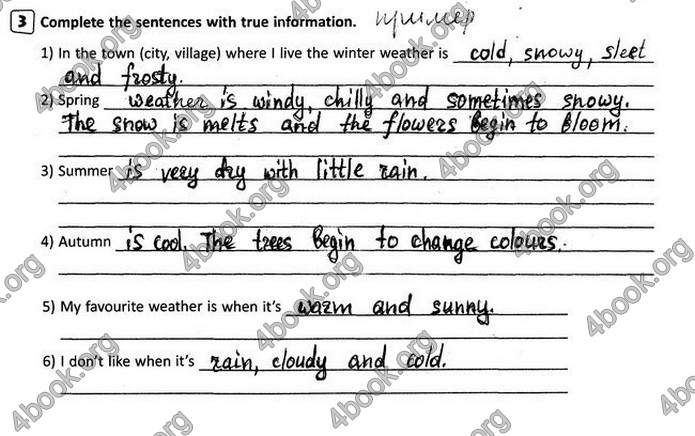 3 Complete the sentences with true information. пример
1) In the town (city, village) where I live the winter weather is cold, snowy, sleet
and frosty.
2) Spring weather is windy, chilly and sometimes snowy.
The snow is melts and the flowers begin to bloom.
3) Summer is very dry with little rain.
4) Autumn is cool. The trees begin to change colours.
5) My favourite weather is when it's warm and sunny.
6) I don't like when it's rain, cloudy and cold.
4book.org
4book.org
4book.org
4book.org
4book.org
4book.org
4book.org
4book.org
4book.org
4book.org